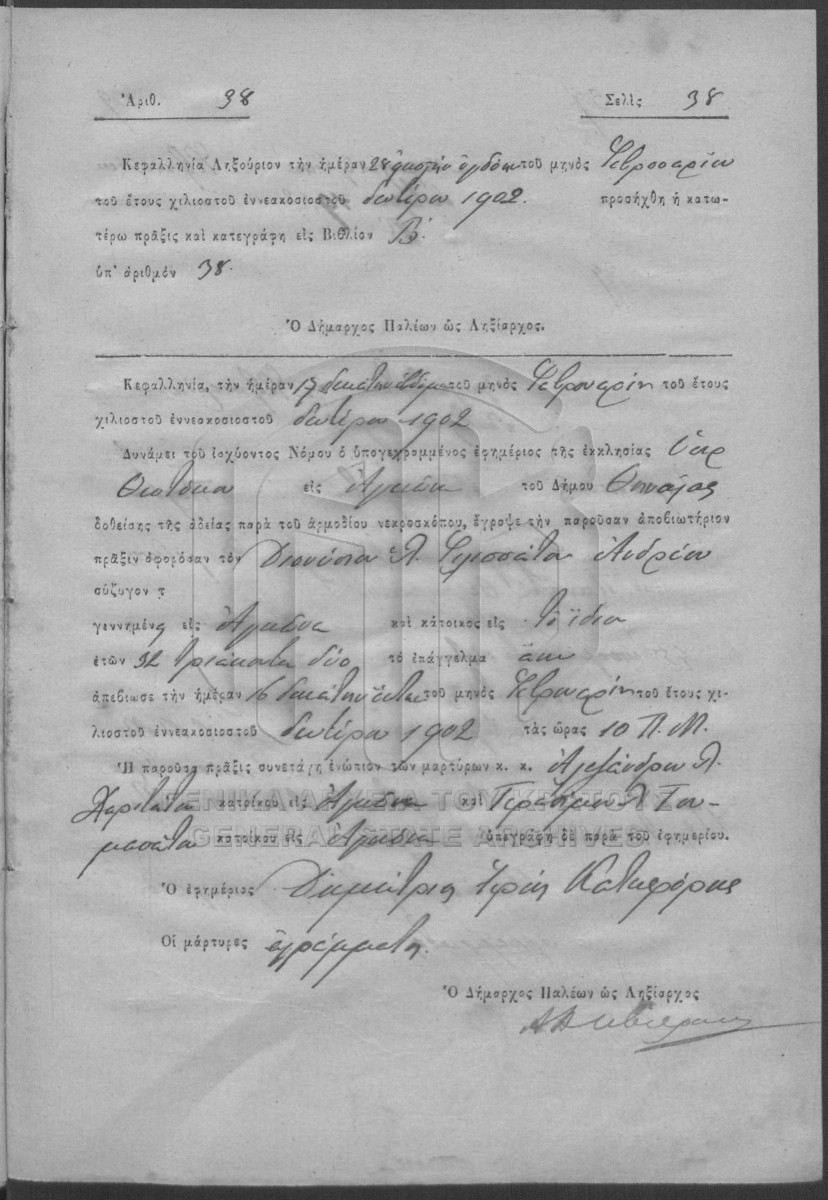 Ἀριθ. 38 Σελὶς 38
Κεφαλληνία Ληξούριον τὴν ἡμέραν 28 εἰκοστὴν ὀγδόην τοῦ μηνὸς Φεβρουαρίου
τοῦ ἔτους χιλιοστοῦ ἐννεακοσιοστοῦ δευτέρου 1902. προσήχθη ἡ κατω-
τέρω πρᾶξις καὶ κατεγράφη εἰς Βιβλίον Β΄.
ὑπ' ἀριθμόν 38.
Ὁ Δήμαρχος Παλέων ὡς Ληξίαρχος.
Κεφαλληνία, τὴν ἡμέραν 17 δεκάτην ἑβδόμην τοῦ μηνὸς Φεβρουαρίου τοῦ ἔτους
χιλιοστοῦ ἐννεακοσιοστοῦ δευτέρου 1902
Δυνάμει τοῦ ἰσχύοντος Νόμου ὁ ὑπογεγραμμένος ἐφημέριος τῆς ἐκκλησίας Ὑπερ
Θεοτόκου εἰς τοῦ Δήμου
δοθείσης τῆς ἀδείας παρὰ τοῦ ἁρμοδίου νεκροσκόπου, ἔγραψε τὴν παροῦσαν ἀποβιωτήριον
πρᾶξιν ἀφορῶσαν τὸν Διονύσιον Ἀνδρέου
σύζυγον τ
γεννημένη εἰς καὶ κάτοικος εἰς τὸ ἴδιον
ἐτῶν 32 τριάκοντα δύο τὸ ἐπάγγελμα
ἀπεβίωσε τὴν ἡμέραν 16 δεκάτην ἕκτην τοῦ μηνὸς Φεβρουαρίου τοῦ ἔτους χι-
λιοστοῦ ἐννεακοσιοστοῦ δευτέρου 1902 τὰς ὥρας 10 Π.Μ.
Ἡ παροῦσα πρᾶξις συνετάγη ἐνώπιον τῶν μαρτύρων κ. κ. Ἀλεξάνδρου Π.
Χαριτάτου κατοίκου εἰς καὶ Γερασίμου
κατοίκου εἰς ὑπεγράφη δὲ παρὰ τοῦ ἐφημερίου.
ΓΕΝΙΚΑ ΑΡΧΕΙΑ ΤΟΥ ΚΡΑΤΟΥΣ
GENERAL STATE ARCHIVES
Ὁ ἐφημέριος Δημήτριος Ἱερεύς
Οἱ μάρτυρες ἀγράμματοι.
Ὁ Δήμαρχος Παλέων ὡς Ληξίαρχος